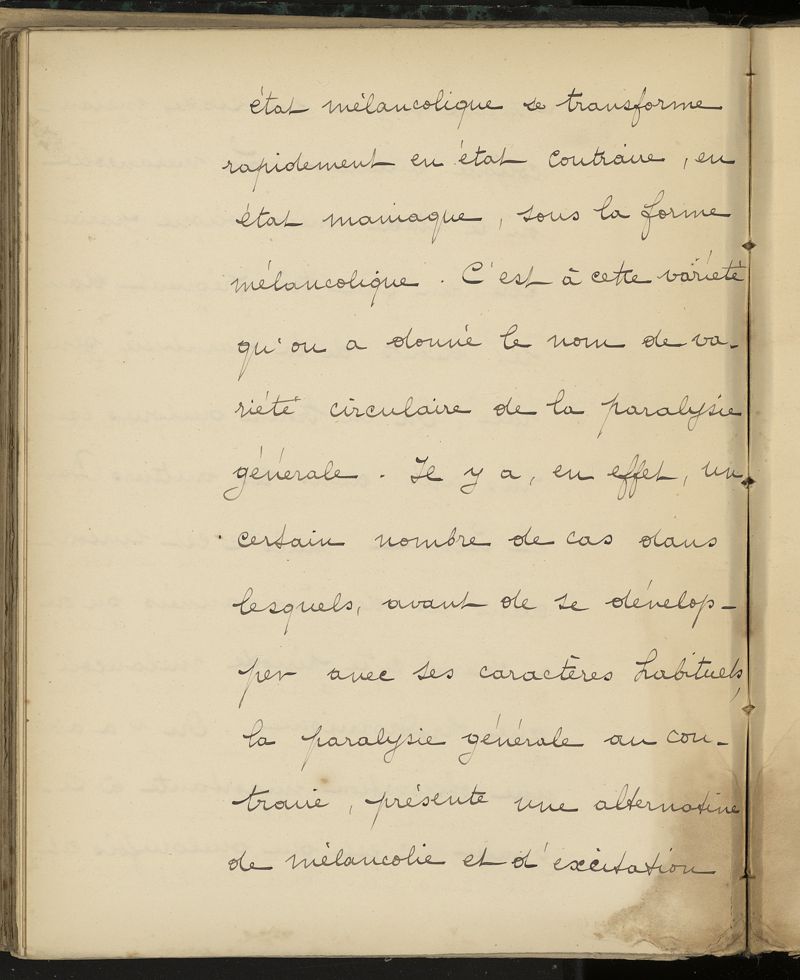 état mélancolique se transforme
rapidement en état contraire, en
état maniaque, sous la forme
mélancolique. C'est à cette variété
qu'on a donné le nom de va-
riété circulaire de la paralysie
générale. Il y a, en effet, un
certain nombre de cas dans
lesquels, avant de se dévelop-
per avec ses caractères habituels,
la paralysie générale au con-
traire, présente une alternative
de mélancolie et d'excitation